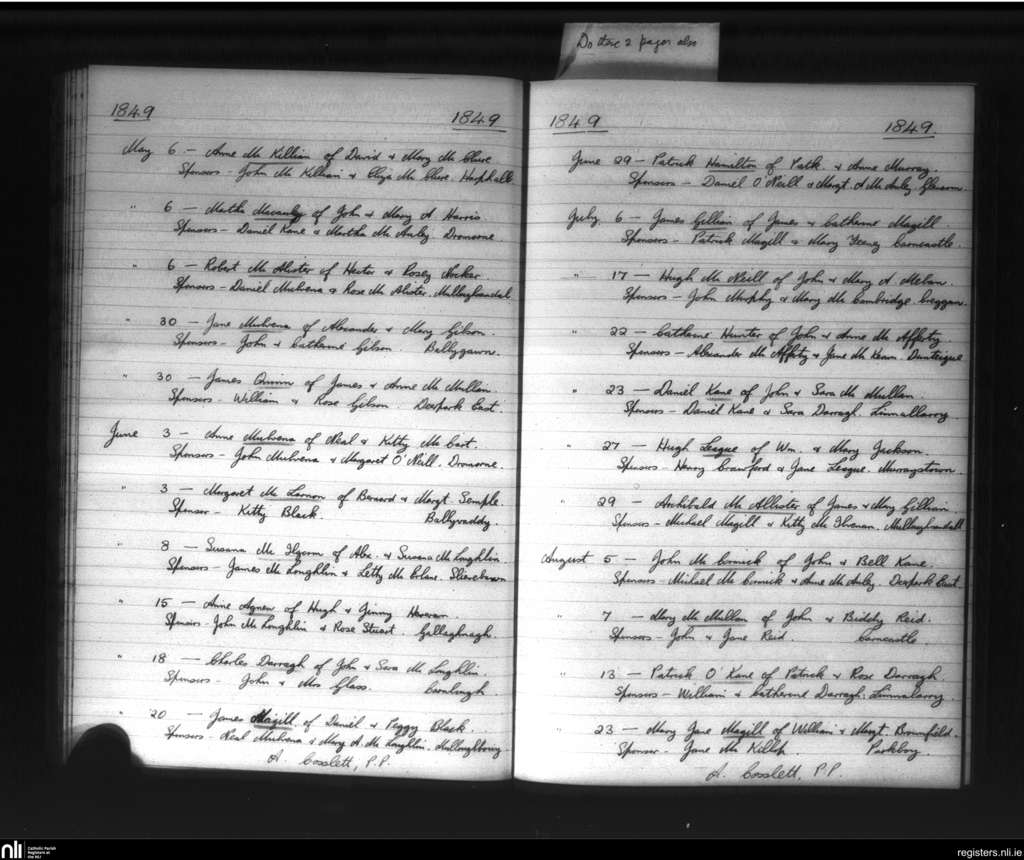 Do these 2 pages also
1849 1849
May 6 - Anne Mc Killian of David & Mary Mc Clure
Sponsors - John Mc Killian & Eliza Mc Clure Harphall
" 6 - Martha Macauley of John & Mary A Harris
Sponsors - Daniel Kane & Martha Mc Auley Dromorne.
" 6 - Robert Mc Alister of Hector & Rosey
Sponsors - Daniel Mulvena & Rose Mc Alister. Mullaghandal
" 30 - Jane Mulvena of Alexander & Mary Gibson.
Sponsors - John & Catherine Gibson. Ballygawn.
" 30 - James Quinn of James & Anne Mc Mullan.
Sponsors. William & Rose Gibson. Deerpark East.
June 3 - Anne Mulvena of Neal & Kitty Mc Cart.
Sponsors - John Mulvena & Margaret O'Neill. Dromorne.
" 3 - Margaret Mc Larnon of Bernard & Margt. Semple.
Sponsor - Kitty Black. Ballyvaddy.
" 8 - Susana Mc Ilgorm of Alex. & Susana Mc Loughlin.
Sponsors - James Mc Loughlin & Letty Mc Clane. Slievebawn
" 15 - Anne Agnew of Hugh & Jinny
Sponsors - John Mc Loughlin & Rose Stuart. Gallaghnagh.
" 18 - Charles Darragh of John & Sara Mc Loughlin.
Sponsors - John & Mrs Glass. Carnlough.
" 20 - James Magill of Daniel & Peggy Black.
Sponsors - Neal Mulvena & Mary A. Mc Loughlin.
A. Cosslett, P.P.
1849 1849.
June 29 - Patrick Hamilton of Patk. & Anne Murray.
Sponsors - Daniel O'Neill & Margt. A Mc Auley. Glenarm.
July 6 - James Gillian of James & Catherine Magill
Sponsors - Patrick Magill & Mary Feeney Carncastle.
" 17 - Hugh Mc Neill of John & Mary A.
Sponsors - John Murphy & Mary Mc Cambridge. Creggan.
" 22 - Catherine Hunter of John & Anne Mc Afferty
Sponsors - Alexander Mc Afferty & Jane Mc Keown. Dunteige
" 23 - Daniel Kane of John & Sara Mc Mullan.
Sponsors - Daniel Kane & Sara Darragh. Linnallarry.
" 27 - Hugh League of Wm. & Mary Jackson.
Sponsors - Henry Crawford & Jane League. Murraystown.
" 29 - Archibald Mc Allister of James & Mary Gillian.
Sponsors - Michael Magill & Kitty Mc Mullaghandall
August 5 - John Mc Cormick of John & Bell Kane.
Sponsors - Michael Mc Cormick & Anne Mc Auley. Deerpark East.
" 7 - Mary Mc Mullan of John & Biddy Reid.
Sponsors - John & Jane Reid. Carncastle
" 13 - Patrick O'Kane of Patrick & Rose Darragh
Sponsors - William & Catherine Darragh. Linnalarry.
" 23 - Mary Jane Magill of William & Margt. Brownfield.
Sponsor - Jane Mc Killop Parkboy.
A. Cosslett, P.P.
nli Catholic Parish Registers at the NLI
registers.nli.ie